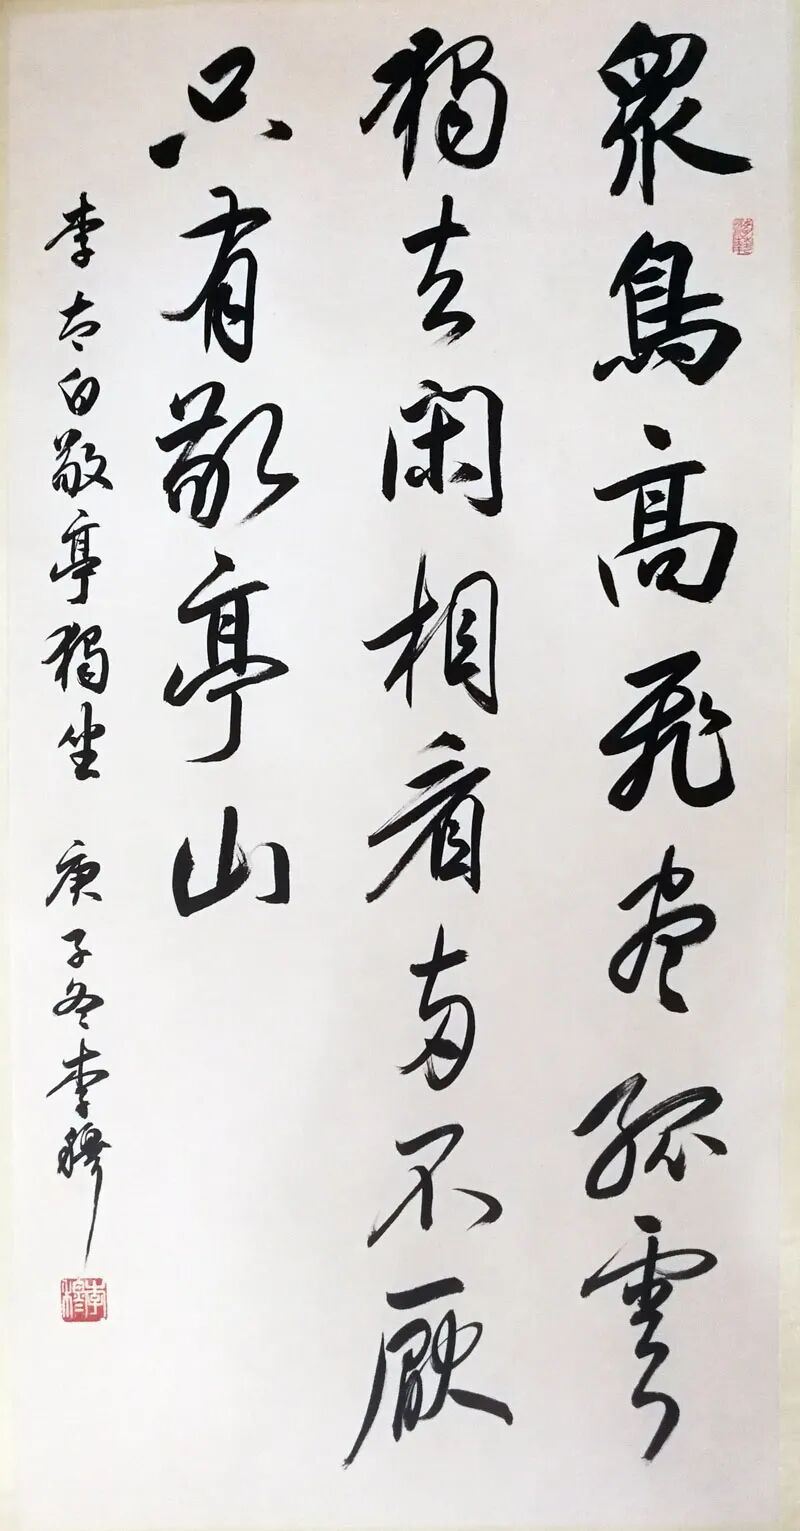 眾鳥高飛盡孤雲
獨去閑相看兩不厭
只有敬亭山
李太白敬亭獨坐 庚子冬李穆
李穆